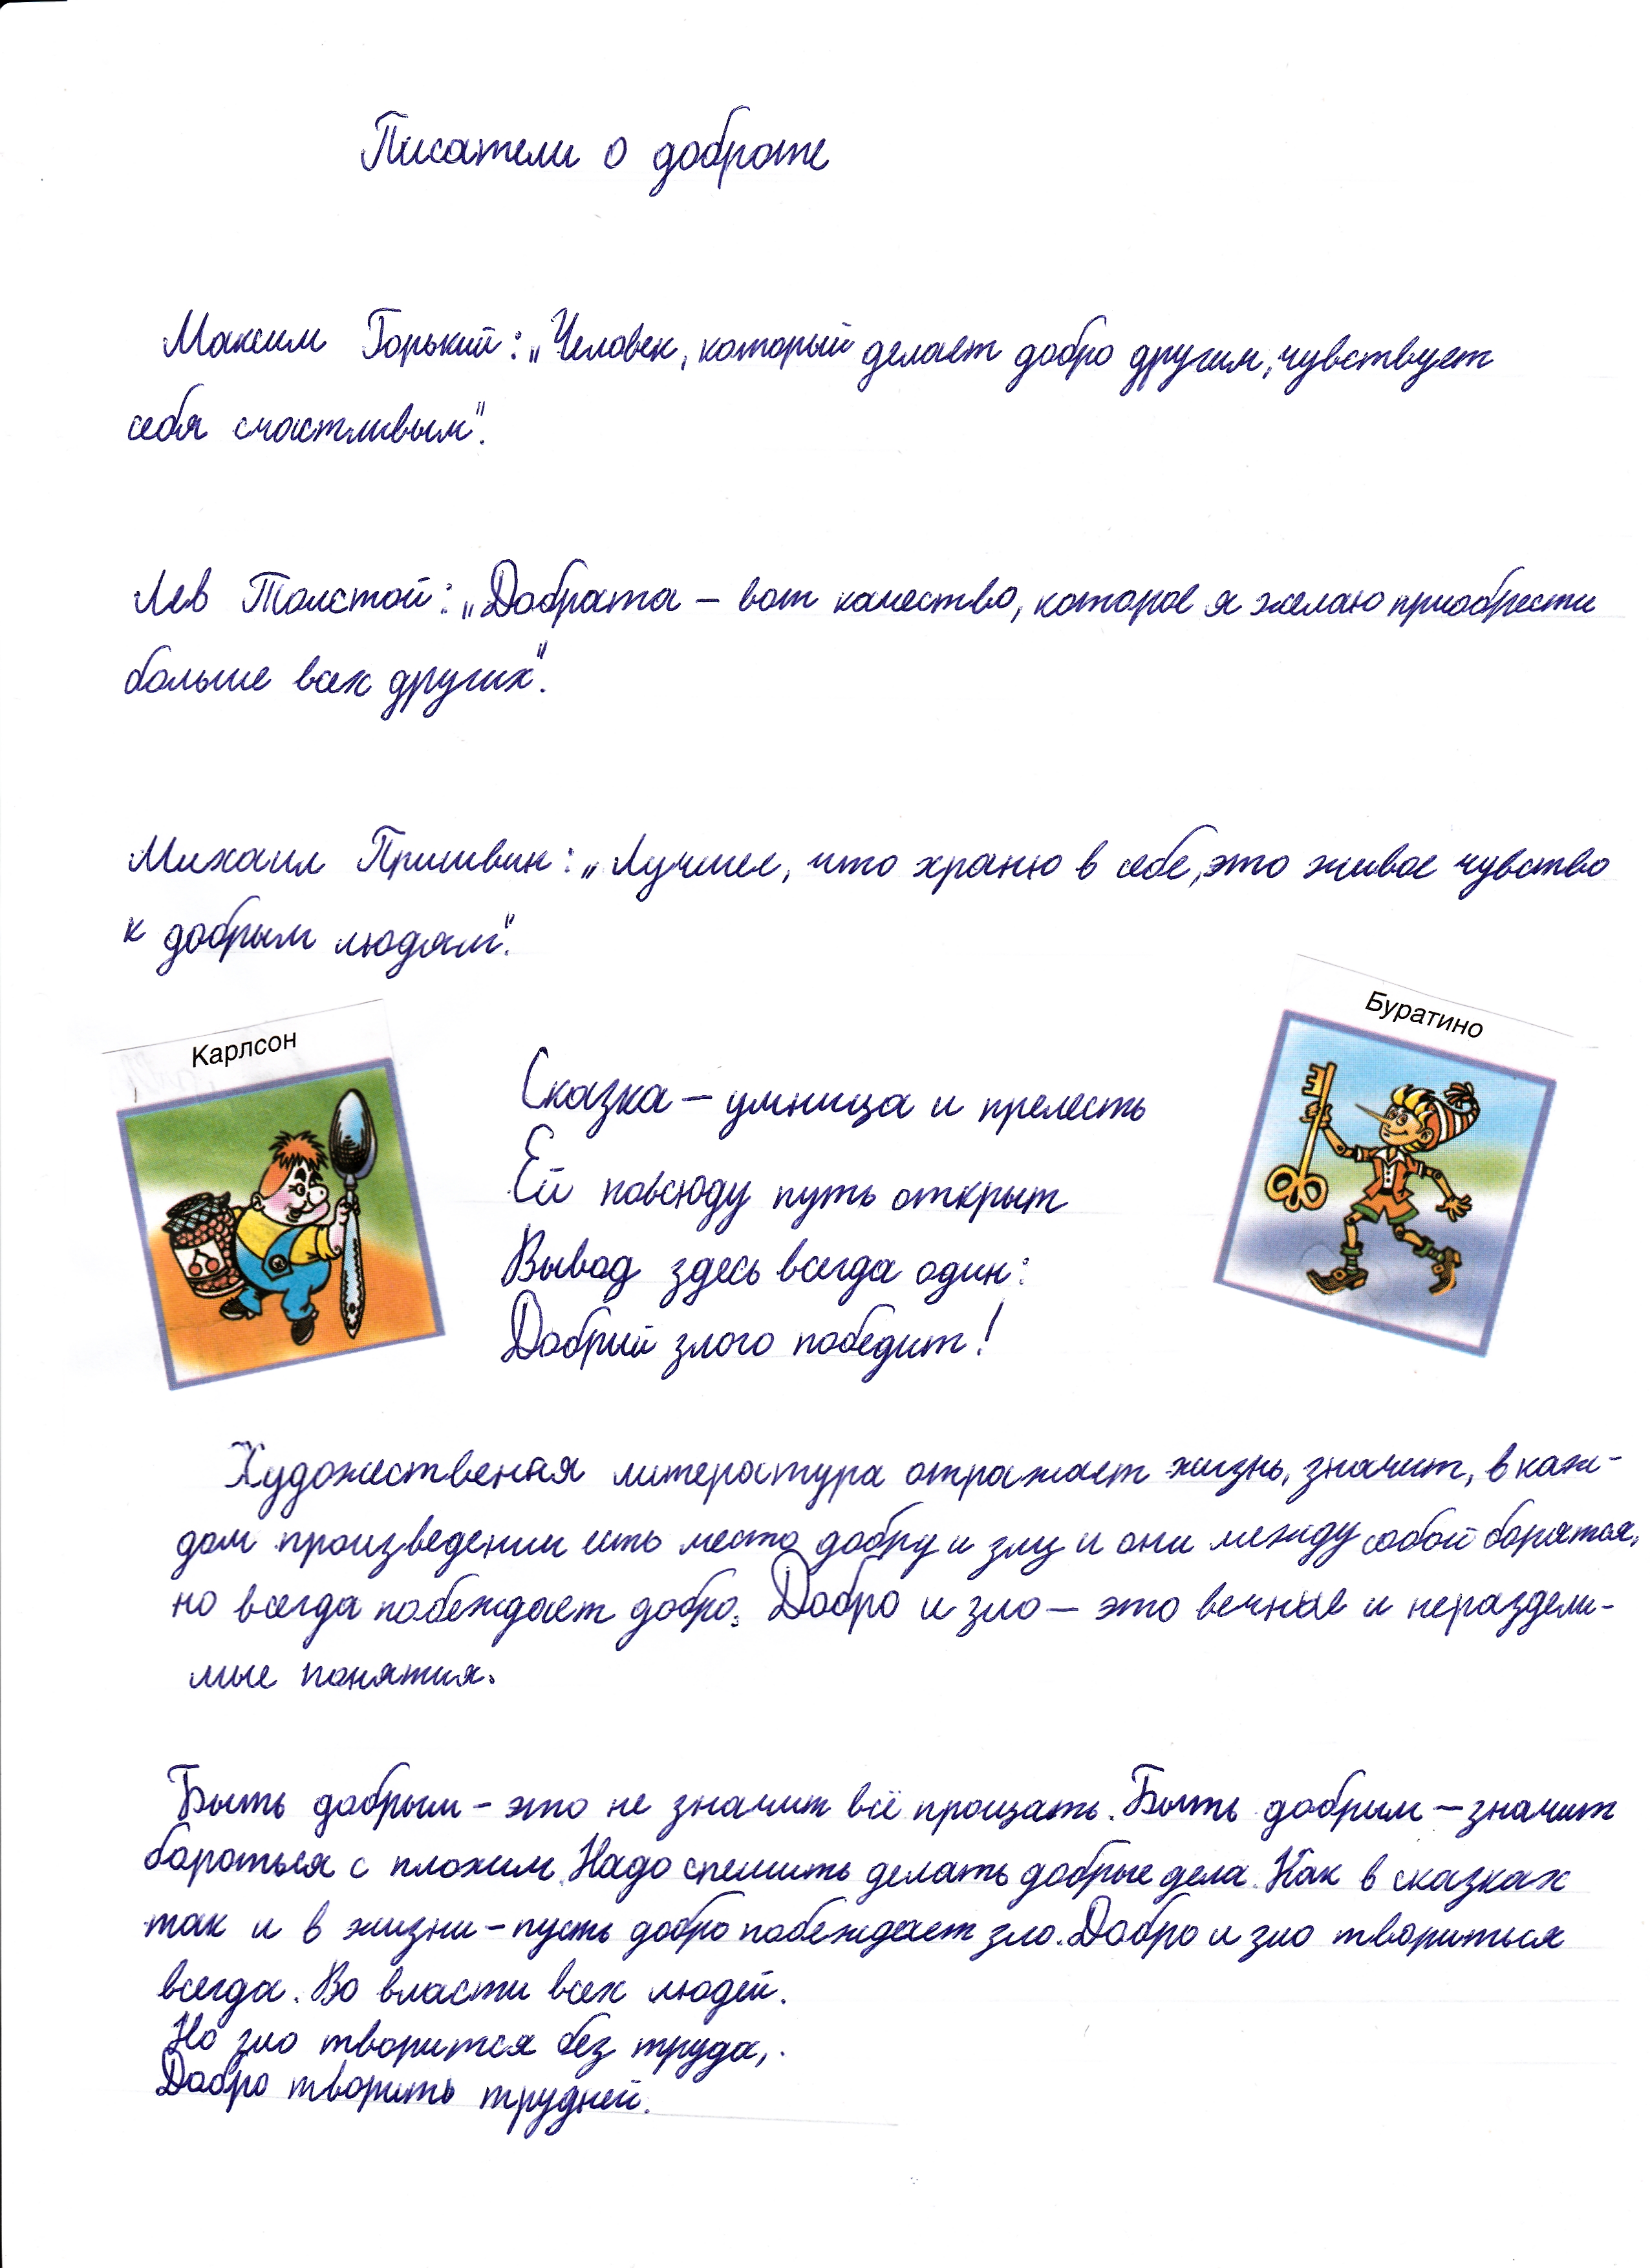 Писатели о доброте
Максим Горький: „Человек, который делает добро другим, чувствует
себя счастливым".
Лев Толстой: „Доброта – вот качество, которое я желаю приобрести
больше всех других".
Михаил Пришвин: „Лучшее, что храню в себе, это живое чувство
к добрым людям".
Карлсон
Буратино
Сказка – умница и прелесть
Ей повсюду путь открыт
Вывод здесь всегда один:
Добрий злого победит!
Художественая литература отражает жизнь, значит, в каж-
дом произведении есть место добру и злу и они между собой борятся,
но всегда побеждает добро. Добро и зло – это вечные и неразде­ли-
мые понятия.
Быть добрым – это не значит всё прощать. Быть добрым – значит
бороться с плохим. Надо спешить делать добрые дела. Как в сказках
так и в жизни – пусть добро побеждает зло. Добро и зло твориться
всегда. Во власти всех людей.
Но зло творится без труда,.
Добро творить трудней.